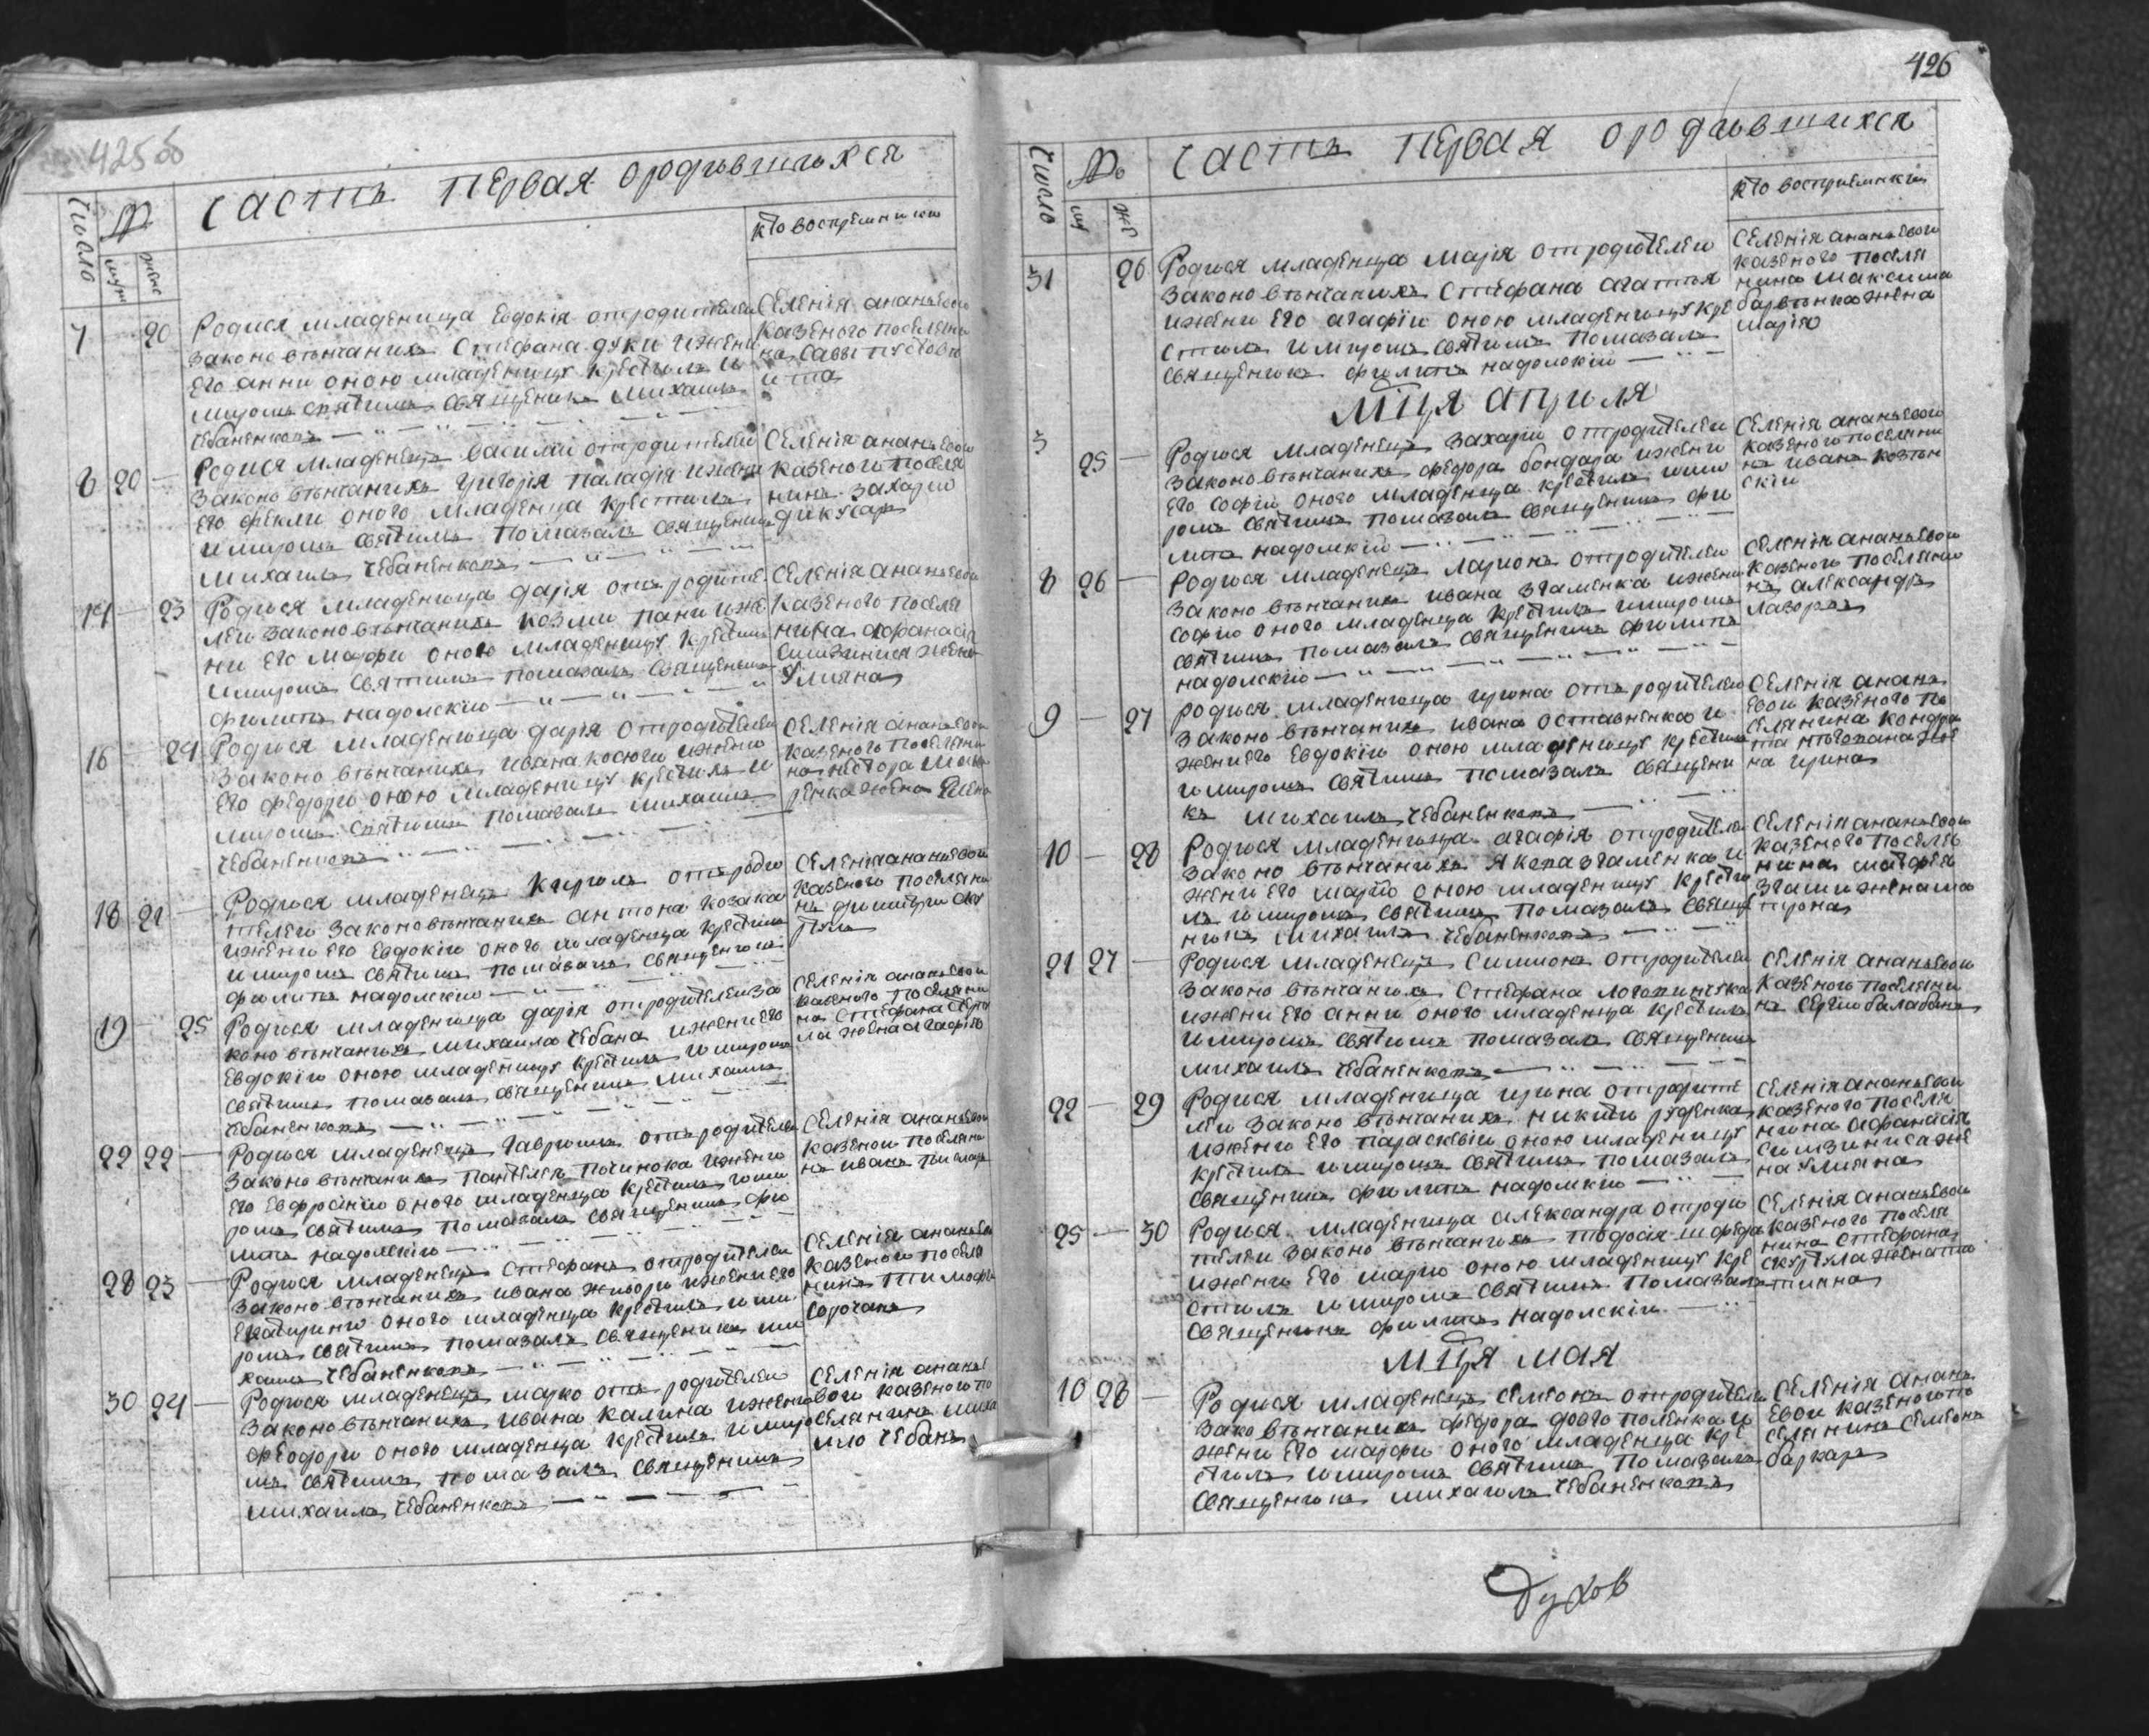 425об
Часть первая о родившихся
Число
№
муж
женс
кто восприемники
7 20 Родися младеница Евдокія отродителеи
законовѣнчаних Стефана Дуки ижени
Его анни оною младеницу крестил и
миром святим священик михаил
Чебаненков
Селенія ананьевои
казеного поселени
на Савы пустов
8 20 Родися младенец василии отродителеи
законовѣнчаних григорія паладія ижени
Его феклы оного младенца крестил
и миром святим помазал священик
михаил Чебаненков
Селенія ананьевои
казеного поселя
нина Захарии
дикусар
14 23 Родися младеница дарія от родите
леи законовѣнчаних козми пани иже
ни Его марфи оною младеницу крестил
и миром святим помазал священик
филип надолскіи
Селенія ананьевои
казеного поселя
нина афанасія
жена
Улияна
16 24 Родися младеница дарія отродителеи
законовѣнчаних ивана косюги ижени
Его феодори оною младеницу крестил и
миром святим помазал михаил
Чебаненков
Селенія ананьевои
казеного поселени
на нестора
жена Елена
18 21 Родися младенец Кирил от роди
телеи законовѣнчаних антона козака
ижени Его Евдокіи оного младенца крестил
и миром святим помазал священик
филип надолскіи
Селенія ананьевои
казеного поселени
на димитрии
19 25 Родися младеница дарія отродителеи за
коновѣнчаних михаила чебана ижени его
Евдокіи оною младеницу крестил и миром
святим помазал священик михаил
Чебаненков
Селенія ананьевои
казеного поселяни
на Стефана
жена агафія
22 22 Родися младенец гавриил от родителеи
законовѣнчаних пантелея починока ижени
Его Евфросініи оного младенца крестил и ми
ром святим помазал священик фи
лип надолскіи
Селенія ананьевои
казенои поселяни
на иван
28 23 Родися младенец Стефан отродителеи
законовѣнчаних ивана живори ижени его
Екатирини оного младенца крестил и ми
ром святим помазал священик ми
хаил Чебаненков
Селенія ананьевои
казеного поселя
нина Тимофеи
Сорочан
30 24 Родися младенец марко от родителеи
законовѣнчаних ивана калина ижени
феодори оного младенца крестил и миро
м святим помазал священик
михаил Чебаненков
Селенія ананье
вои казеного по
селянина миха
ило Чебан
426
Число
№
му
же
Часть первая о родившихся
кто восприемники
31 26 Родися младеница марія отродителеи
законовѣнчаних Стефана агатія
ижени Его агафіи оною младеницу кре
стил и миром святим помазал
священик филип надолскіи
Селенія ананьевои
казеного поселя
нина максима
барвѣнка жена
марія
мця априля
3 25 Родися младенец захарии отродителеи
законовѣнчаних феодора бондара ижени
Его софіи оного младенца крестил и ми
ром святим помазал священик фи
лип надолскіи
Селенія ананьевои
казеного поселяни
на иван козѣн
скіи
8 26 Родися младенец ларион отродителеи
законовѣнчаних ивана згаменка ижени
софии оного младенца крестил и миром
святим помазал священик филип
надолскіи
Селенія ананьевои
казеного поселяни
на александр
лазорка
9 27 родися младеница ирина от родителеи
законовѣнчаних ивана оставненка и
жени его Евдокіи оною младеницу крестил
и миром святим помазал священи
к михаил Чебаненков
Селенія анань
Евои казеного по
селянина кондра
та же
на ирина
10 28 Родися младеница агафія отродителеи
законовѣнчаних якова згаменка и
жени Его маріи оною младеницу крести
л и миром святим помазал свяще
ник михаил Чебаненков
Селенія ананьевои
казеного поселя
нина матфея
жена ма
трона
21 27 Родися младенец Симион отродителеи
законовѣнчаних Стефана логвинчука
ижени Его анни оного младенца крестил
и миром святим помазал священик
михаил Чебаненков
Селенія ананьевои
казеного поселяни
на Сергіи балабан
22 29 Родися младеница ирина отродите
леи законовѣнчаних никити руденка
ижени Его параскевіи оною младеницу
крестил и миром святим помазал
священик филип надолкіи
Селенія ананьевои
казеного поселя
нина афанасія
же
на Улияна
25 30 Родися младеница александра отроди
телеи законовѣнчаних тодосія
ижени Его маріи оною младеницу кре
стил и миром святим помазал
священик филип надолскіи
Селенія ананьевои
казеного поселя
нина стефана
скуртула жена та
тияна
мця мая
10 28 Родися младенец Симеон отродителеи
законовѣнчаних феодора довгополенка и
жени Его марфи оного младенца кре
стил и миром святим помазал
священик михаил Чебаненков
Селенія анань
Евои казеного по
селянина Симеон
баркар
Духов